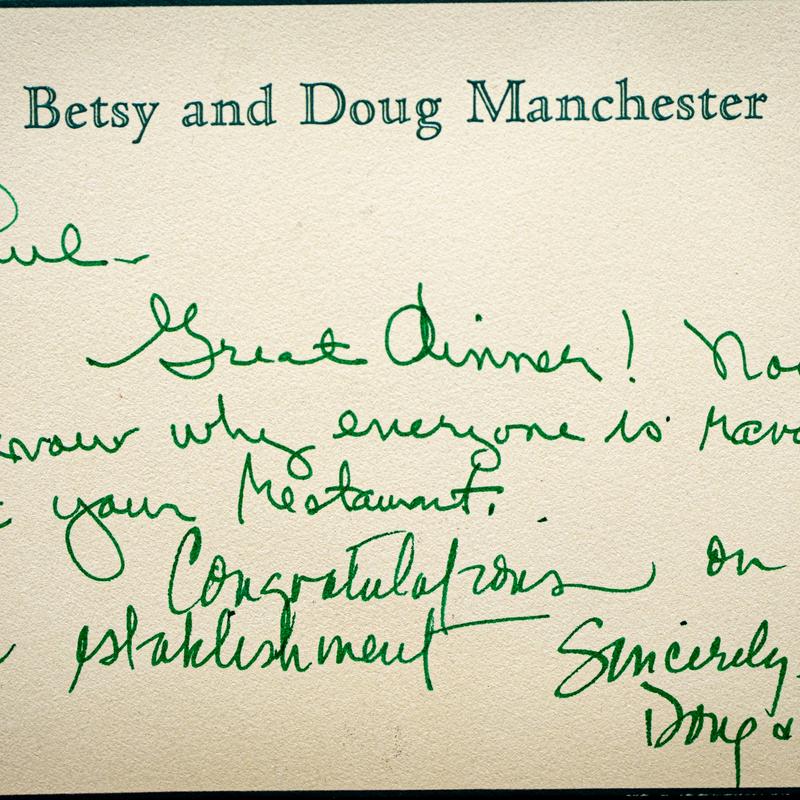 Betsy and Doug Manchester
Great dinner! Now
know why everyone is
your Restaurant.
Congratulations on
establishment Sincerely,
Doug &